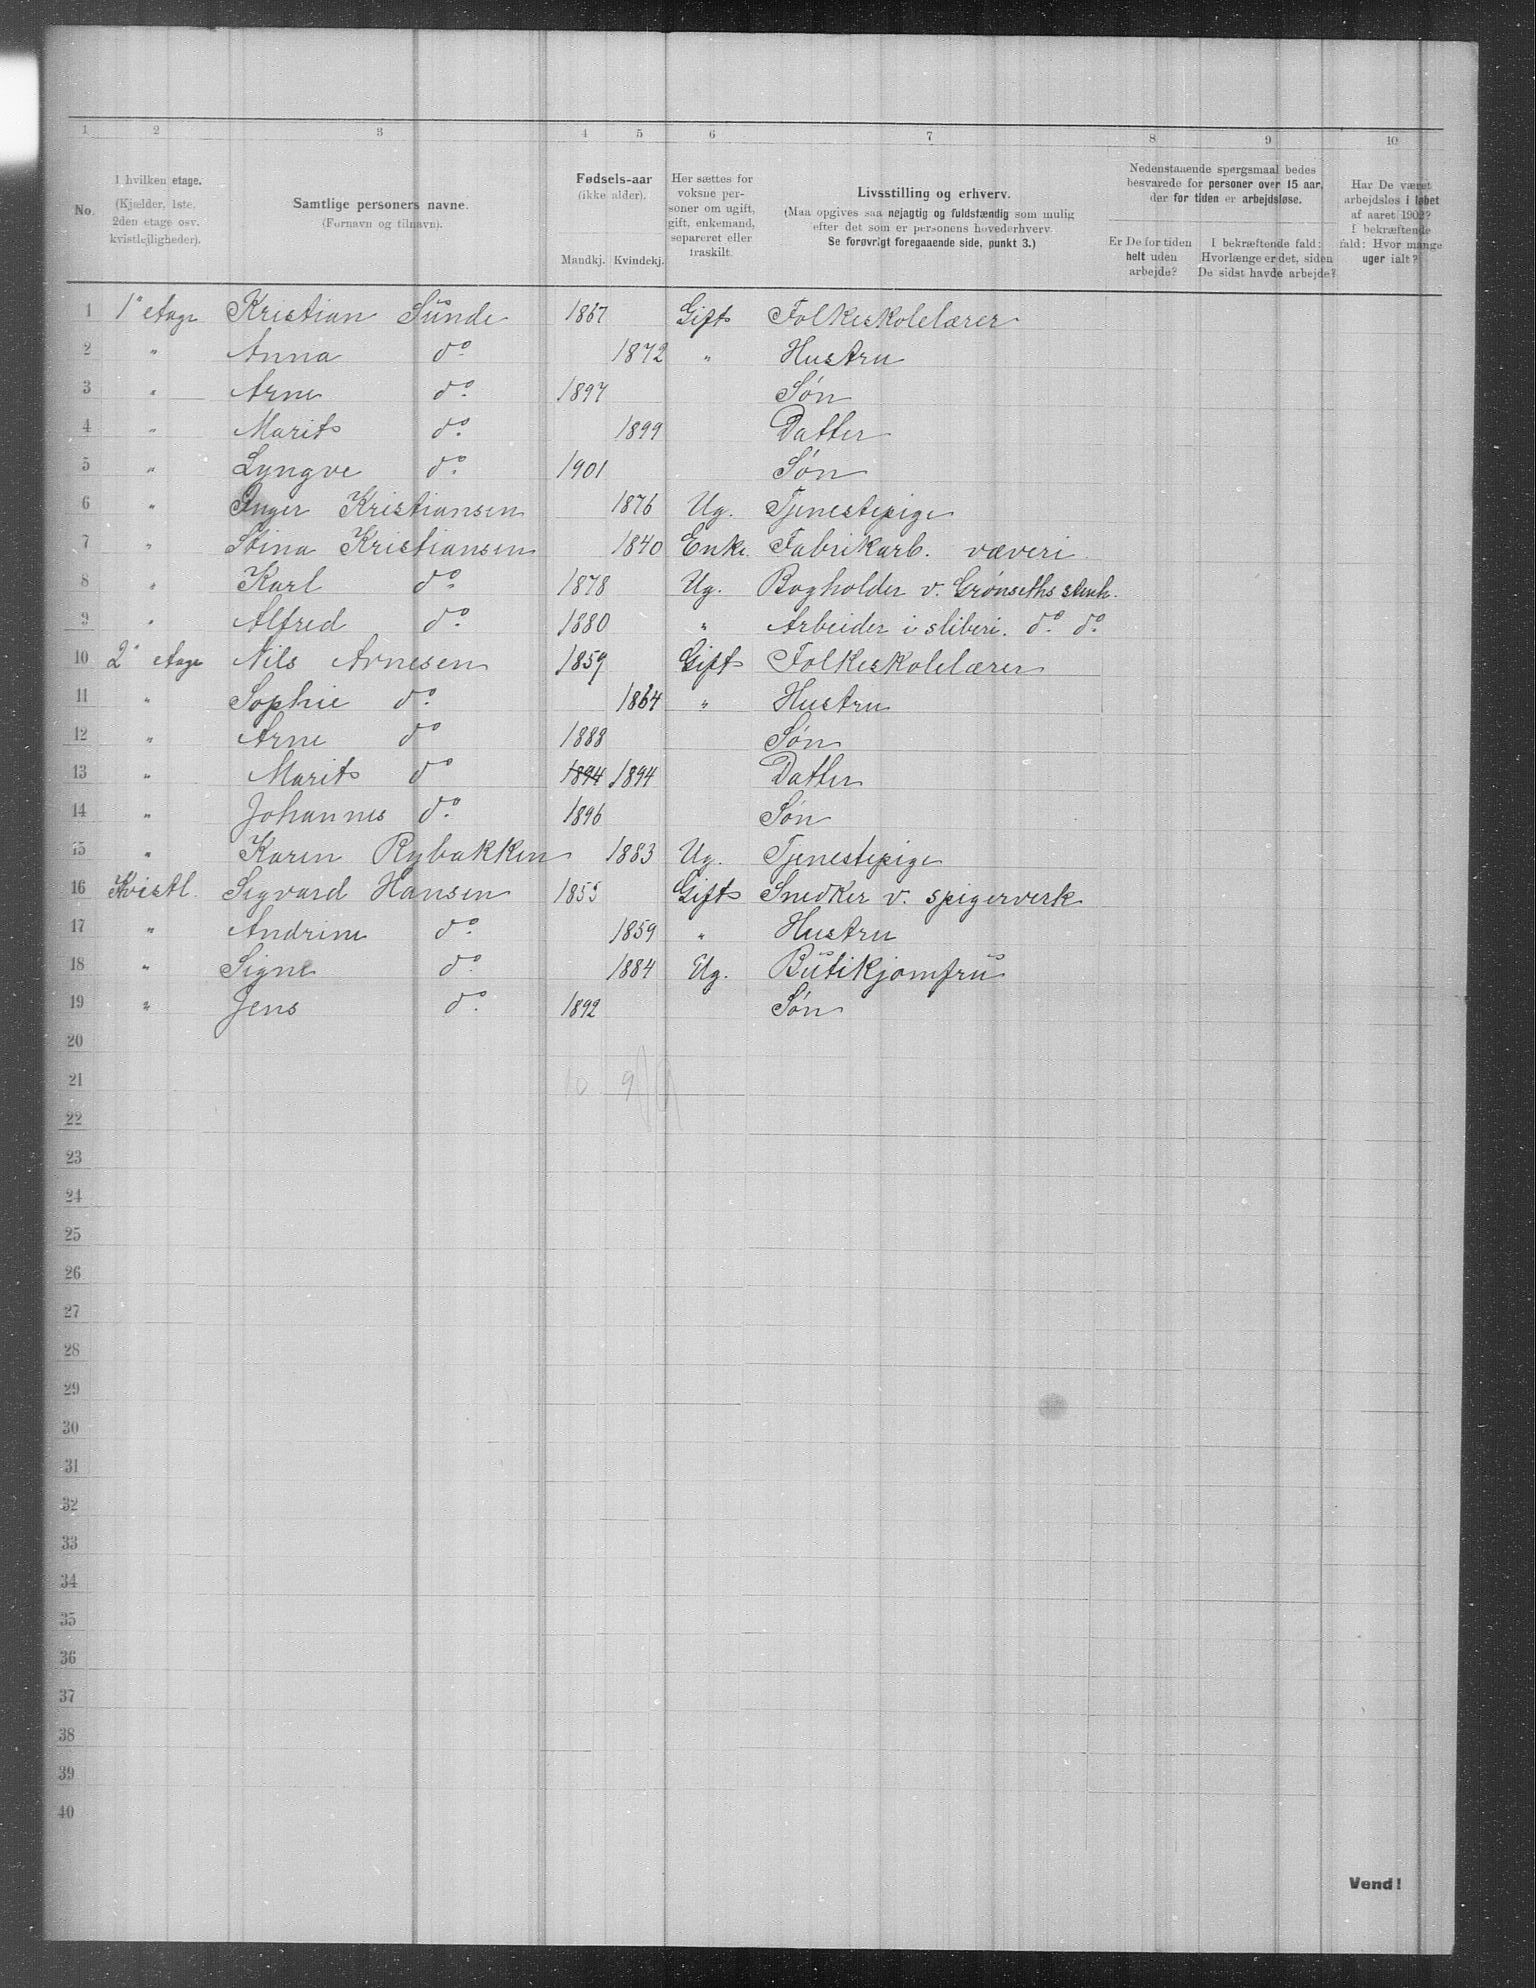 1 2 3 4 5 6 7 8 9 10
No. I hvilken etage. (Kjælder, 1ste, 2den etage osv. kvistlejligheder). Samtlige personers navne. (Fornavn og tilnavn). Fødsels-aar (ikke alder). Mandkj. Kvindekj. Her sættes for voksne personer om ugift, gift, enkemand, separeret eller fraskilt. Livsstilling og erhverv. (Maa opgives saa nøjagtig og fuldstændig som mulig efter det som er personens hovederhverv. Se forøvrigt foregaaende side, punkt 3.) Nedenstaaende spørgsmaal bedes besvarede for personer over 15 aar, der for tiden er arbejdsløse. Er De for tiden helt uden arbejde? I bekræftende fald: Hvorlænge er det, siden De sidst havde arbejde? Har De været arbejdsløs i løbet af aaret 1902? I bekræftende fald: Hvor mange uger ialt?
1 1ste etage Kristian Sunde 1867 Gift Folkeskolelærer
2 " Anna do 1872 " Hustru
3 " Arne do 1897 Søn
4 " Marit do 1899 Datter
5 " Lyngve do 1901 Søn
6 " Inger Kristiansen 1876 Ug. Tjenestepige
7 " Stina Kristiansen 1840 Enke Fabrikarb. væveri
8 " Karl do 1878 Ug. Bogholder v. Grønseths stenh.
9 " Alfred do 1880 " Arbeider i sliberi. do do
10 2 etage Nils Arnesen 1859 Gift Folkeskolelærer
11 " Sophie do 1864 " Hustru
12 " Arne do 1888 Søn
13 " Marit do 1894 1894 Datter
14 " Johannes do 1896 Søn
15 " Karen Rybakken 1883 Ug. Tjenestepige
16 Kvistl. Sigvard Hansen 1855 Gift Snedker v. spigerverk
17 " Andrine do 1859 " Hustru
18 " Signe do 1884 Ug. Butikjomfru
19 " Jens do 1892 Søn
20
21 10 9
22
23
24
25
26
27
28
29
30
31
32
33
34
35
36
37
38
39
40
Vend!